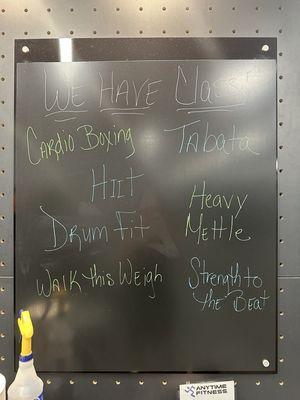 WE HAVE Class!
Cardio Boxing
Tabata
HIIT
Drum Fit
Heavy
Mettle
Walk this Weigh
Strength to
the Beat
ANYTIME
FITNESS